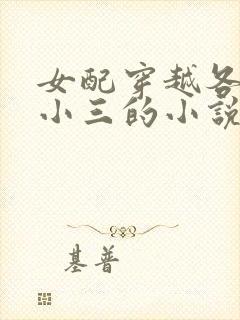 女配穿越各
小三的小說
基普